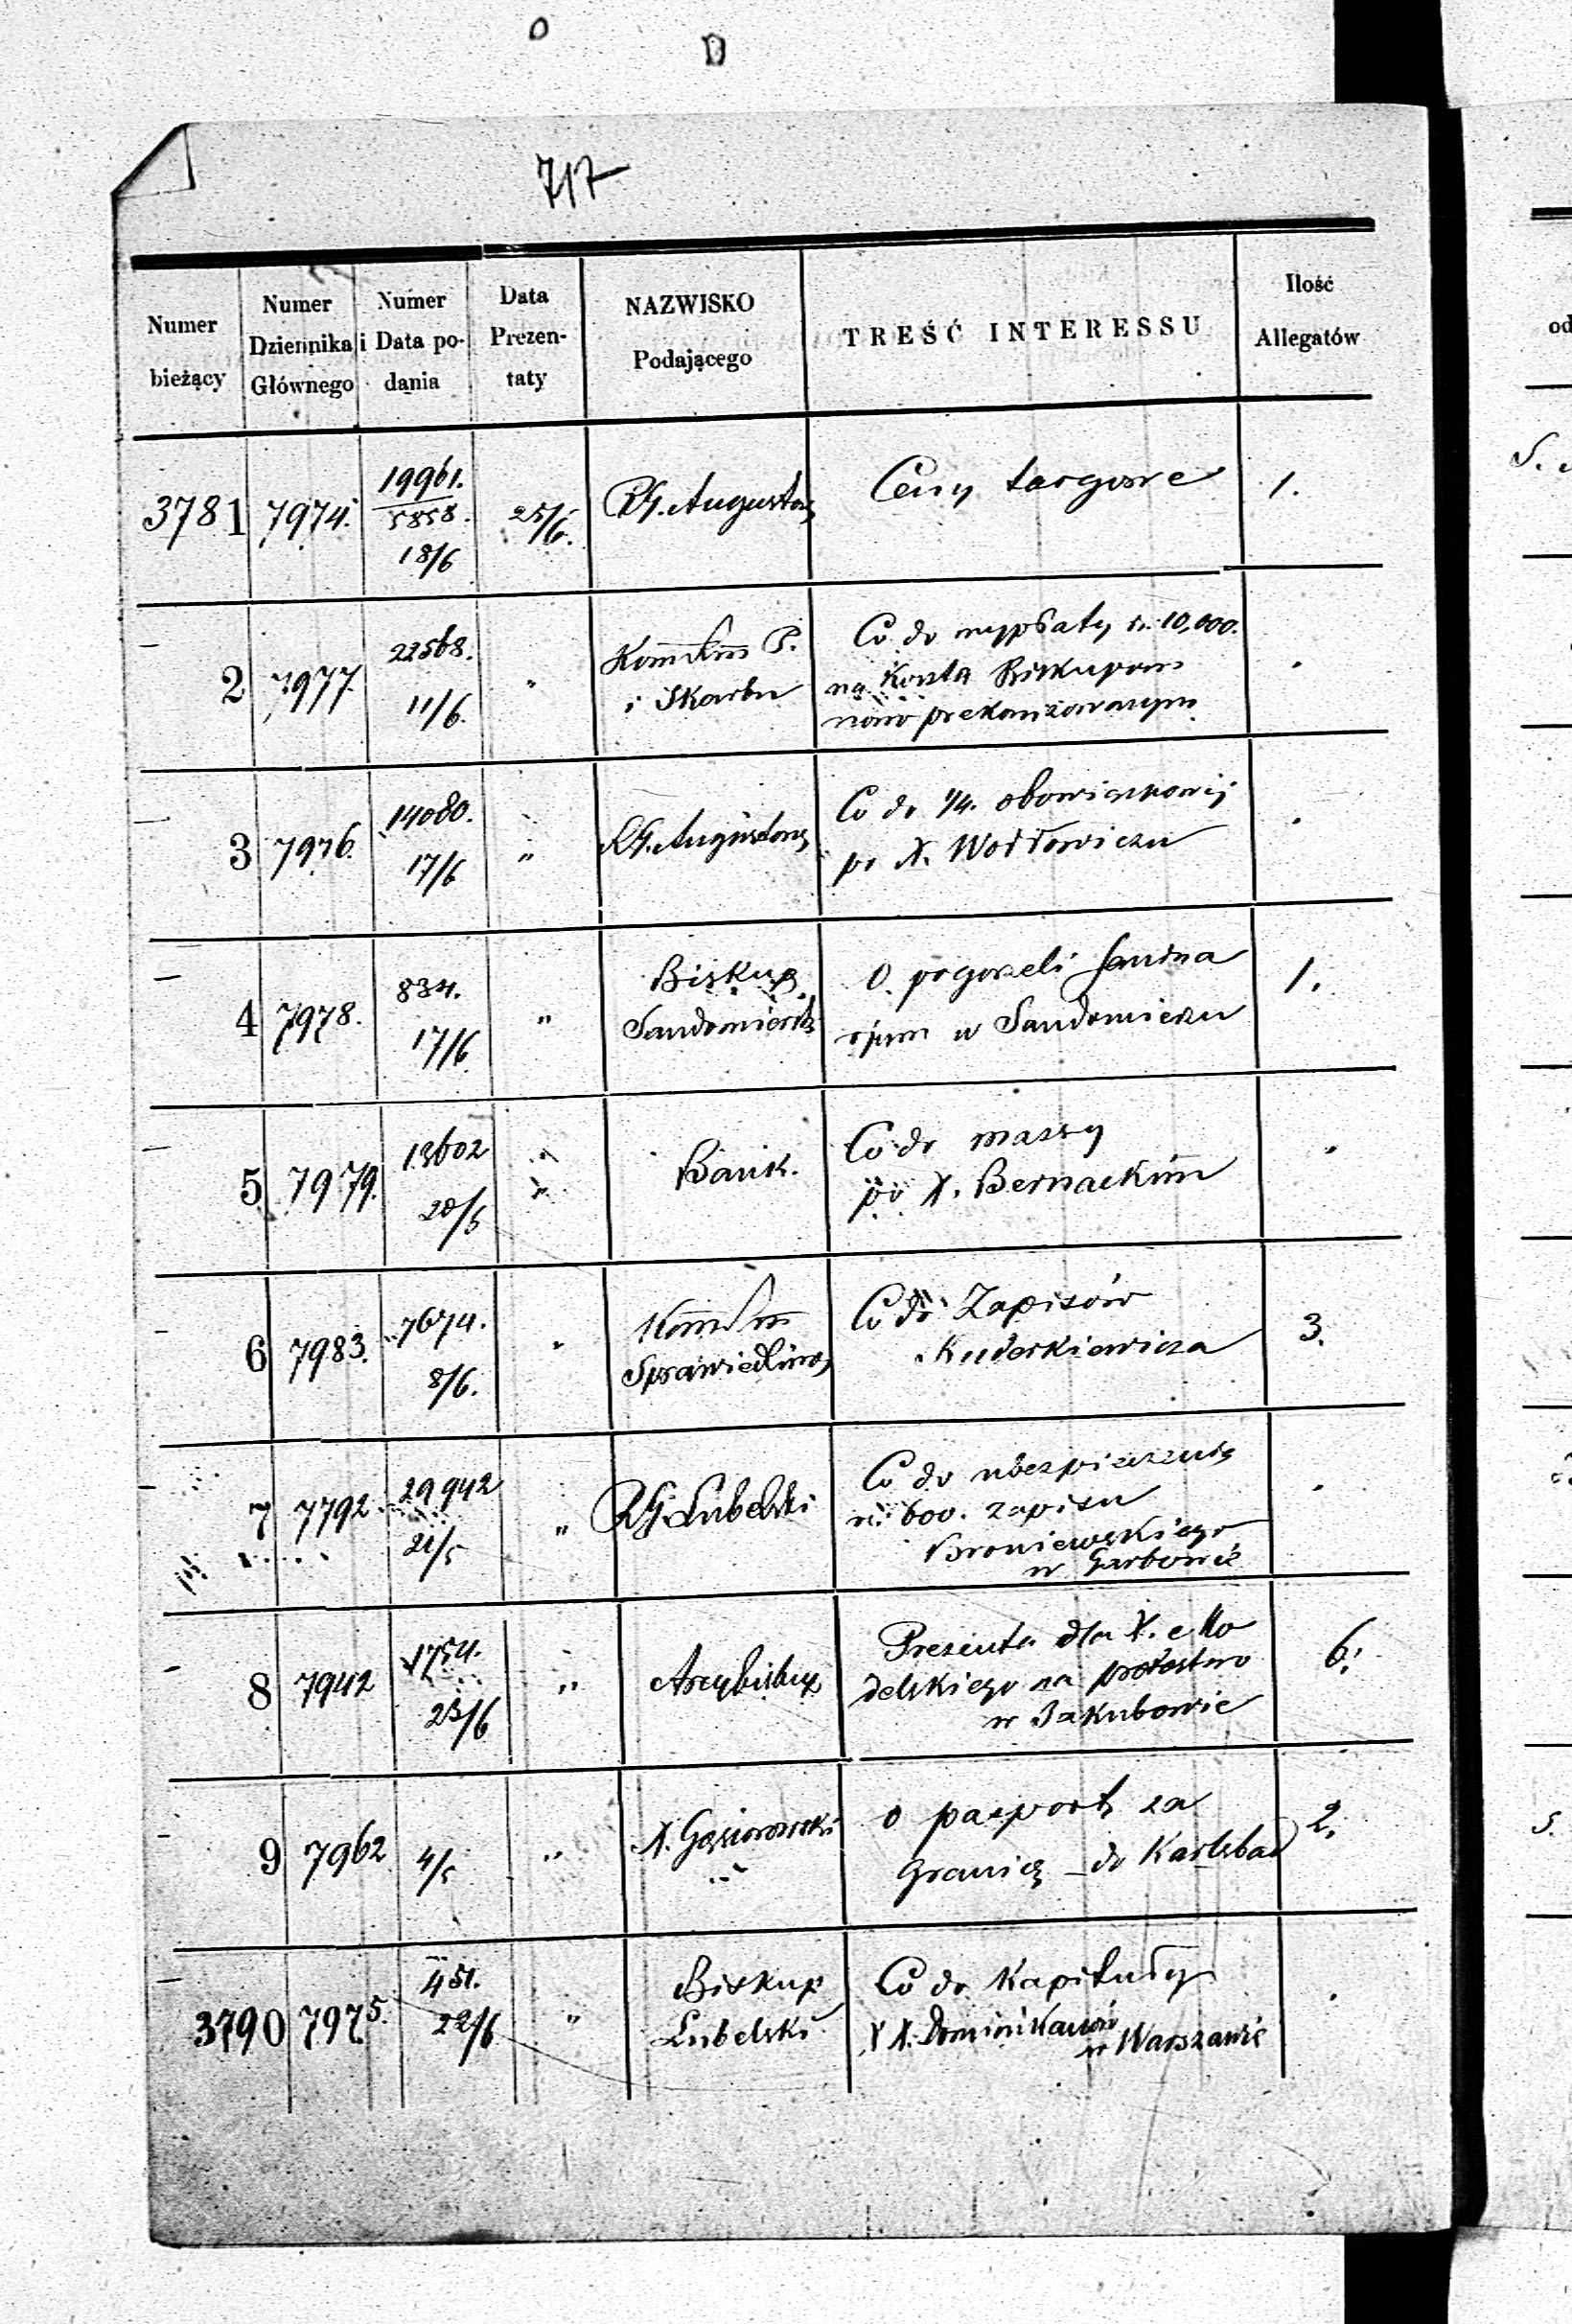 717
Numer bieżący
Numer Dziennika Głównego
Numer i Data podania
Data Prezentaty
NAZWISKO Podającego
TREŚĆ INTERESSU
Ilość Allegatów
3781 7974. 19961. 5858. 18/6 25/6. RG. Augustow Ceny targowe 1.
2 7977 22568. 11/6. " Kommss P. i Skarbu
Co do wypłaty rs. 10,000.
na Koszta Biskupom
nowo prekonizowanym
3 7976. 14080. 17/6 " RG. Augustows
Co do 1/4. obowiązkowej
po X. Wołłowiczu
4 7978. 834. 17/6 " Biskup Sandomierski 1.
O pogorzeli Semina
rjum w Sandomierzu
5 7979. 13602 20/5 " Bank.
Co do massy
po X. Bernackim
6 7983. 7674. 8/6. " Kommss Sprawiedliwos 3.
Co do Zapisów
Kuderkiewicza
7 7792 29942 21/5 " RG. Lubelski
Co do ubezpieczenia
rs. 600. zapisu
Broniewskiego
w Garbowie
8 7942 1754. 23/6 " Arcybiskup 6.
Prezenta dla X. Mo
delskiego na probostwo
w Jakubowie
9 7962 4/5 " X. Gąsiorowski 2.
O paszport za
Granicę do Karlsbad
3790 7975. 451. 22/6 " Biskup Lubelski
Co do Kapituły
XX. Dominikanów
w Warszawie